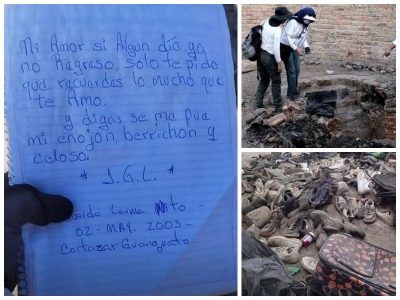 Mi Amor si Algun día ya
no Regreso, solo te pido
que recuerdes lo mucho que
te Amo.
y digas se ma fue
mi enojon, berrichon y
celoso.
* J.G.L. *
02 - MAY. 2003 -
Cortazar Guanajuato -